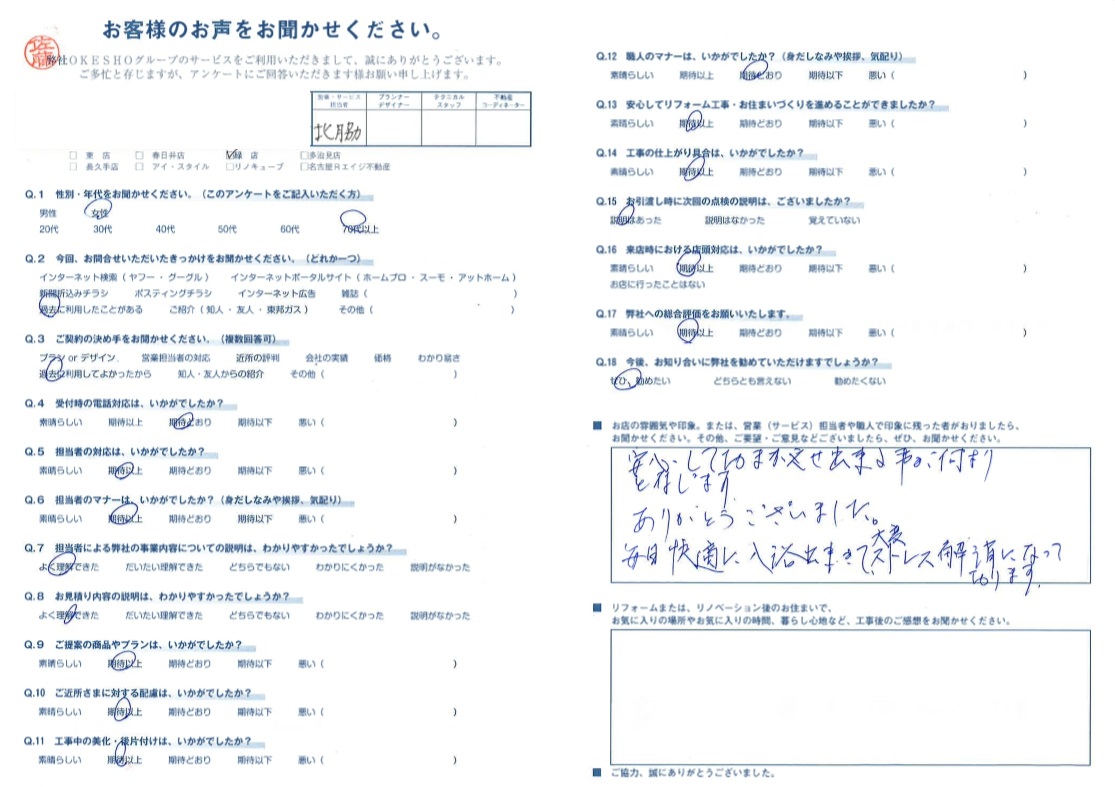 お客様のお声をお聞かせください。
佐藤
弊社OKESHOグループのサービスをご利用いただきまして、誠にありがとうございます。
ご多忙と存じますが、アンケートにご回答いただきます様お願い申し上げます。
営業・サービス担当者 プランナーデザイナー テクニカルスタッフ 不動産コーディネーター
□ 東 店 □ 春日井店 ☑緑 店 □多治見店
□ 長久手店 □ アイ・スタイル □リノキューブ □名古屋Rエイジ不動産
Q.1 性別・年代をお聞かせください。（このアンケートをご記入いただく方）
男性 女性
20代 30代 40代 50代 60代 70代以上
Q.2 今回、お問合せいただいたきっかけをお聞かせください。（どれか一つ）
インターネット検索（ ヤフー ・ グーグル ） インターネットポータルサイト（ ホームプロ ・ スーモ ・ アットホーム ）
新聞折込みチラシ ポスティングチラシ インターネット広告 雑誌（ ）
過去に利用したことがある ご紹介（ 知人 ・ 友人 ・ 東邦ガス ） その他（ ）
Q.3 ご契約の決め手をお聞かせください。（複数回答可）
プラン or デザイン 営業担当者の対応 近所の評判 会社の実績 価格 わかり易さ
過去に利用してよかったから 知人・友人からの紹介 その他（ ）
Q.4 受付時の電話対応は、いかがでしたか？
素晴らしい 期待以上 期待どおり 期待以下 悪い（ ）
Q.5 担当者の対応は、いかがでしたか？
素晴らしい 期待以上 期待どおり 期待以下 悪い（ ）
Q.6 担当者のマナーは、いかがでしたか？（身だしなみや挨拶、気配り）
素晴らしい 期待以上 期待どおり 期待以下 悪い（ ）
Q.7 担当者による弊社の事業内容についての説明は、わかりやすかったでしょうか？
よく理解できた だいたい理解できた どちらでもない わかりにくかった 説明がなかった
Q.8 お見積り内容の説明は、わかりやすかったでしょうか？
よく理解できた だいたい理解できた どちらでもない わかりにくかった 説明がなかった
Q.9 ご提案の商品やプランは、いかがでしたか？
素晴らしい 期待以上 期待どおり 期待以下 悪い（ ）
Q.10 ご近所さまに対する配慮は、いかがでしたか？
素晴らしい 期待以上 期待どおり 期待以下 悪い（ ）
Q.11 工事中の美化・後片付けは、いかがでしたか？
素晴らしい 期待以上 期待どおり 期待以下 悪い（ ）
Q.12 職人のマナーは、いかがでしたか？（身だしなみや挨拶、気配り）
素晴らしい 期待以上 期待どおり 期待以下 悪い（ ）
Q.13 安心してリフォーム工事・お住まいづくりを進めることができましたか？
素晴らしい 期待以上 期待どおり 期待以下 悪い（ ）
Q.14 工事の仕上がり具合は、いかがでしたか？
素晴らしい 期待以上 期待どおり 期待以下 悪い（ ）
Q.15 お引渡し時に次回の点検の説明は、ございましたか？
説明はあった 説明はなかった 覚えていない
Q.16 来店時における店頭対応は、いかがでしたか？
素晴らしい 期待以上 期待どおり 期待以下 悪い（ ）
お店に行ったことはない
Q.17 弊社への総合評価をお願いいたします。
素晴らしい 期待以上 期待どおり 期待以下 悪い（ ）
Q.18 今後、お知り合いに弊社を勧めていただけますでしょうか？
ぜひ、勧めたい どちらとも言えない 勧めたくない
■ お店の雰囲気や印象。または、営業（サービス）担当者や職人で印象に残った者がおりましたら、
お聞かせください。その他、ご要望・ご意見などございましたら、ぜひ、お聞かせください。
安心して
と存じます
ありがとうございました。
毎日快適に入浴出来きて、大変ストレス解消になって
おります。
■ リフォームまたは、リノベーション後のお住まいで、
お気に入りの場所やお気に入りの時間、暮らし心地など、工事後のご感想をお聞かせください。
■ ご協力、誠にありがとうございました。